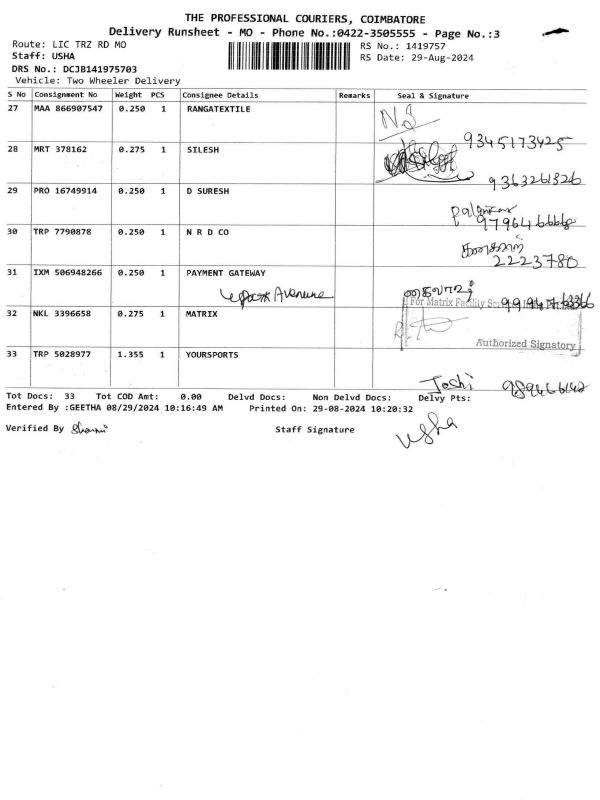 THE PROFESSIONAL COURIERS, COIMBATORE
Delivery Runsheet - MO - Phone No.:0422-3505555 - Page No.:3
Route: LIC TRZ RD MO RS No.: 1419757
Staff: USHA RS Date: 29-Aug-2024
DRS No.: DCJB141975703
Vehicle: Two Wheeler Delivery
S No Consignment No Weight PCS Consignee Details Remarks Seal & Signature
27 MAA 866907547 0.250 1 RANGATEXTILE
9345173425
28 MRT 378162 0.275 1 SILESH
9363261326
29 PRO 16749914 0.250 1 D SURESH
30 TRP 7790878 0.250 1 N R D CO
2223780
31 IXM 506948266 0.250 1 PAYMENT GATEWAY
Avenue
For Matrix Facility
32 NKL 3396658 0.275 1 MATRIX
Authorized Signatory
33 TRP 5028977 1.355 1 YOURSPORTS
Joshi
Tot Docs: 33 Tot COD Amt: 0.00 Delvd Docs: Non Delvd Docs: Delvy Pts:
Entered By :GEETHA 08/29/2024 10:16:49 AM Printed On: 29-08-2024 10:20:32
Verified By Staff Signature
usha